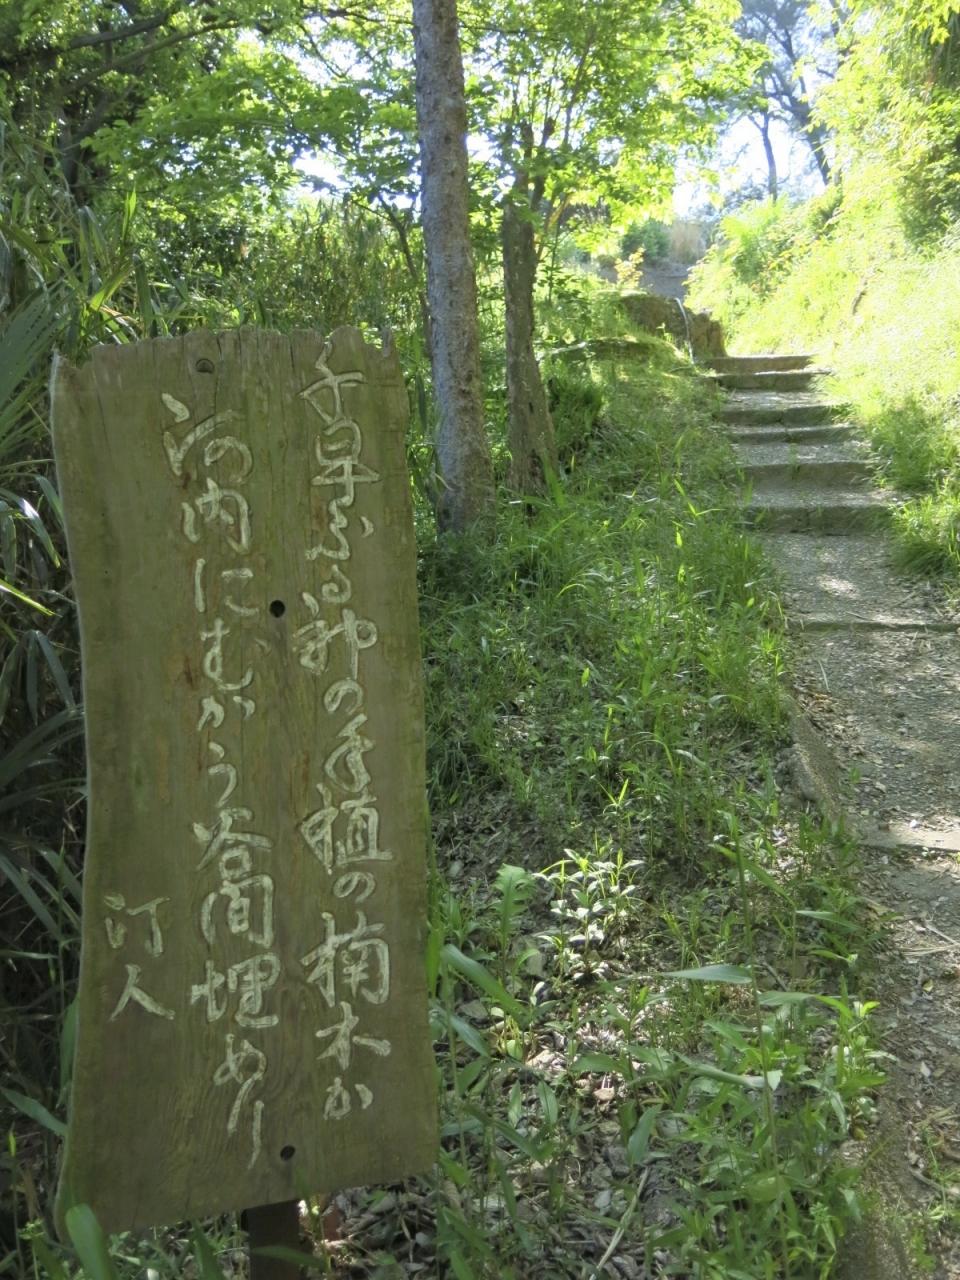 千早ふる神の手植の楠木か
河内にむかう谷間埋めり
汀人